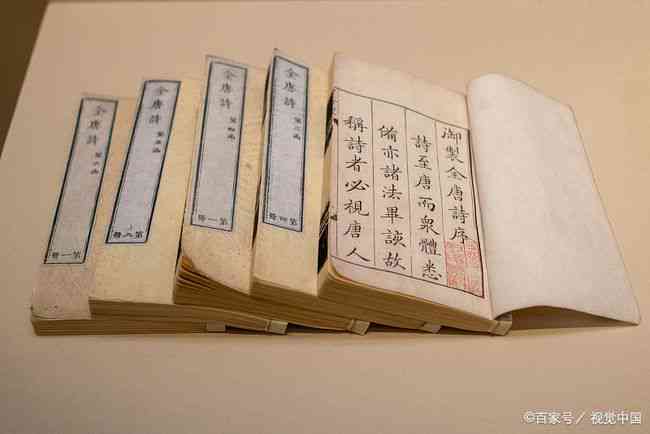 御製全唐詩序
詩至唐而衆體悉
俻亦諸法畢該故
稱詩者必視唐人
全唐詩
第四冊
全唐詩
第四函
第一冊
全唐詩
第五函
第八冊
全唐詩
第六函
第一冊
©百家号／视觉中国